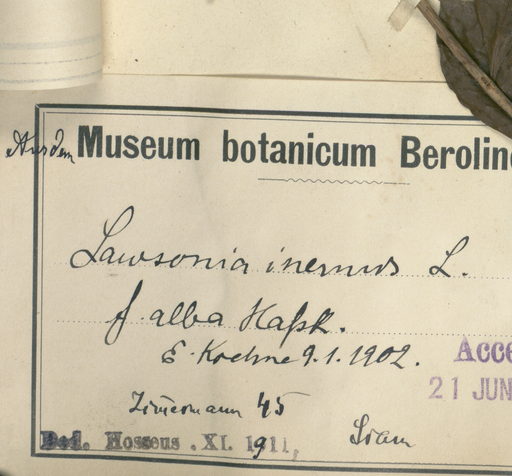 Aus dem Museum botanicum Beroline
Lawsonia inermis L.
f. alba Hassk.
E. Koehne 9.1.1902.
Acce
21 JUN
Zimmermann 45
Siam
Ded. Hosseus . XI. 1911,